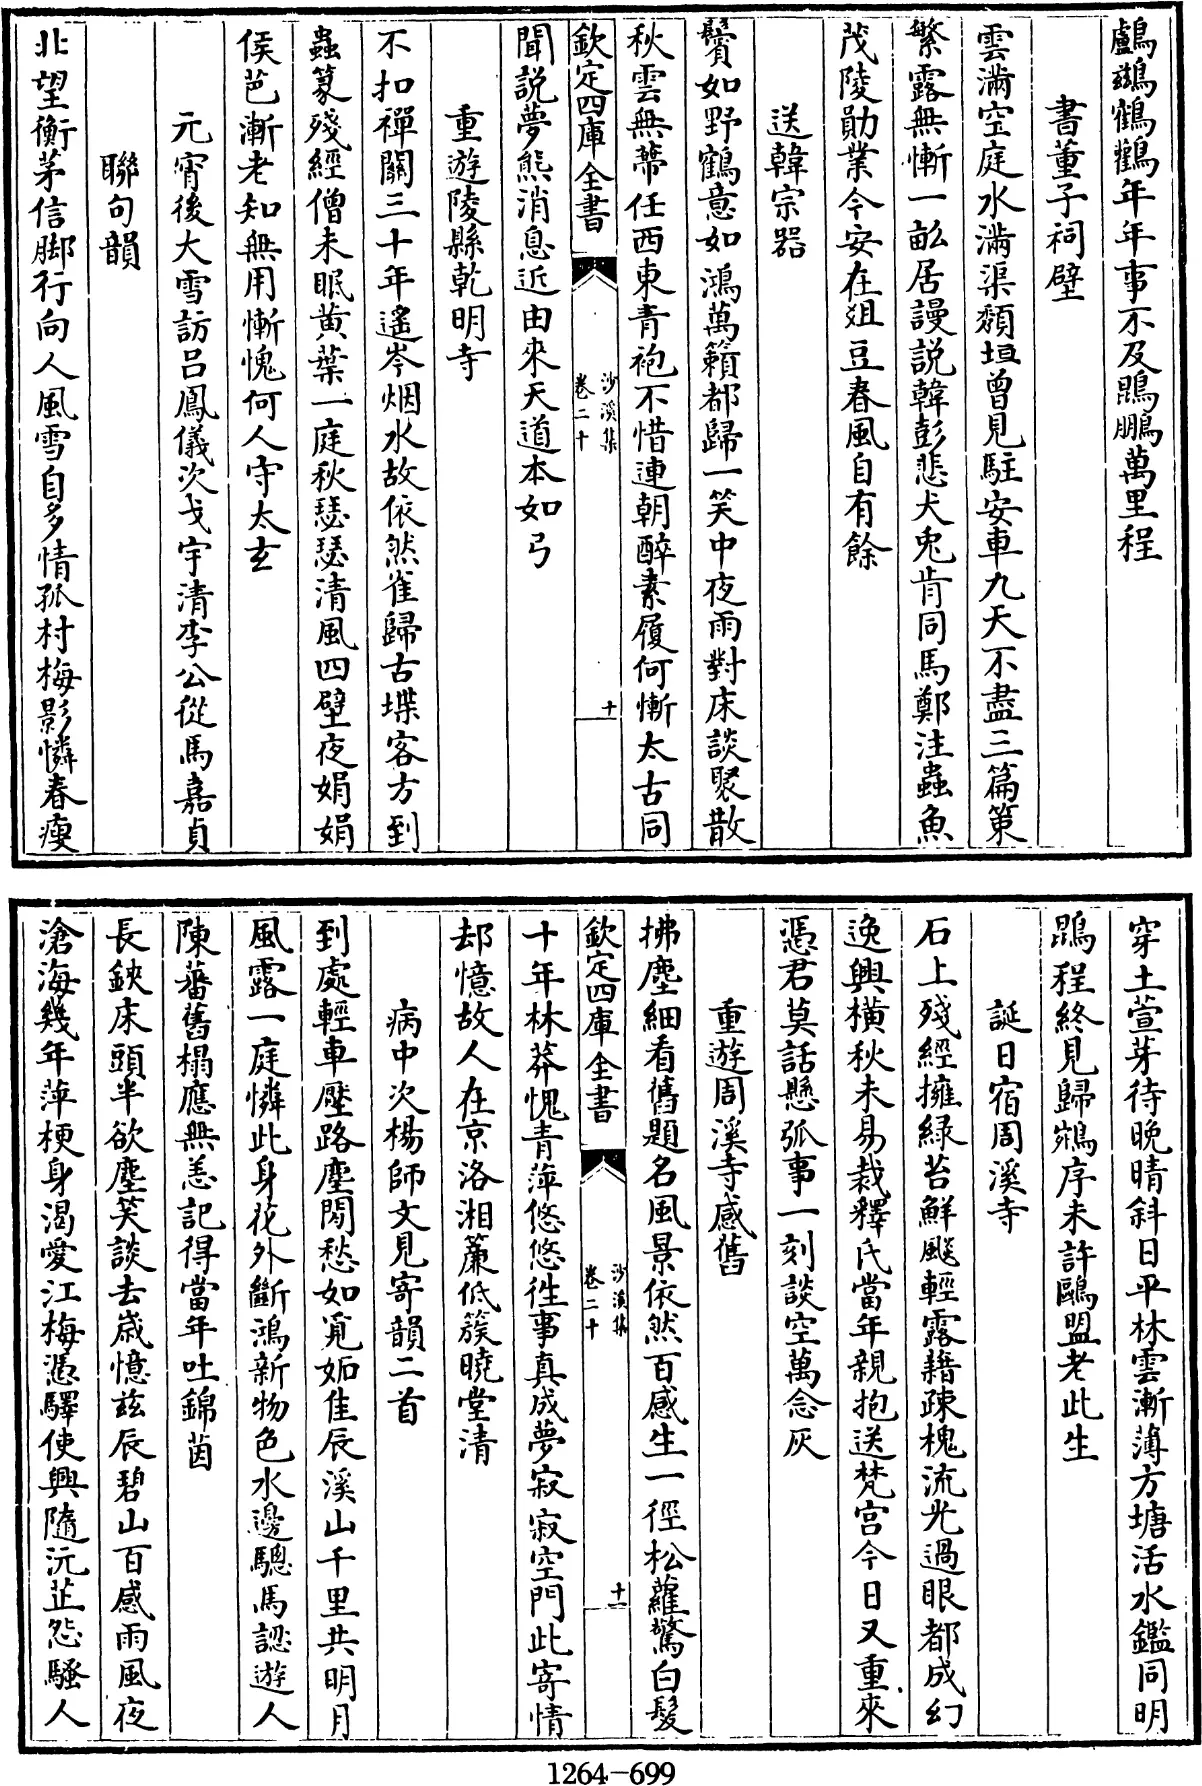 鸕鷀鶴鸛年年事不及鵾鵬萬里程
書董子祠壁
雲滿空庭水滿渠頽垣曾見駐安車九天不盡三篇策
繁露無慚一畝居謾説韓彭悲犬兎肯同馬鄭注蟲魚
茂陵勛業今安在俎豆春風自有餘
送韓宗器
鬢如野鶴意如鴻萬籟都歸一笑中夜雨對床談聚散
秋雲無蔕任西東青袍不惜連朝醉素履何慚太古同
欽定四庫全書
沙溪集
卷二十
十
聞説夢熊消息近由來天道本如弓
重遊陵縣乾明寺
不扣禪關三十年遙岑烟水故依然雀歸古堞客方到
蟲篆殘經僧未眠黄葉一庭秋瑟瑟清風四壁夜娟娟
侯芭漸老知無用慚愧何人守太玄
元宵後大雪訪吕鳳儀次戈宇清李公從馬嘉貞
聯句韻
北望衡茅信脚行向人風雪自多情孤村梅影憐春瘦
穿土萱芽待晚晴斜日平林雲漸薄方塘活水鑑同明
鵾程終見歸鵷序未許鷗盟老此生
誕日宿周溪寺
石上殘經擁緑苔鮮飈輕露藉疎槐流光過眼都成幻
逸興横秋未易裁釋氏當年親抱送梵宫今日又重來
憑君莫話懸弧事一刻談空萬念灰
重遊周溪寺感舊
拂塵細看舊題名風景依然百感生一徑松蘿驚白髮
欽定四庫全書
沙溪集
卷二十
十一
十年林莽愧青萍悠悠徃事真成夢寂寂空門此寄情
却憶故人在京洛湘簾低簇曉堂清
病中次楊師文見寄韻二首
到處輕車壓路塵閒愁如覓妬佳辰溪山千里共明月
風露一庭憐此身花外斷鴻新物色水邊驄馬認遊人
陳蕃舊榻應無恙記得當年吐錦茵
長鋏床頭半欲塵笑談去歲憶兹辰碧山百感雨風夜
滄海幾年萍梗身渴愛江梅憑驛使興隨沅芷怨騷人
1264-699